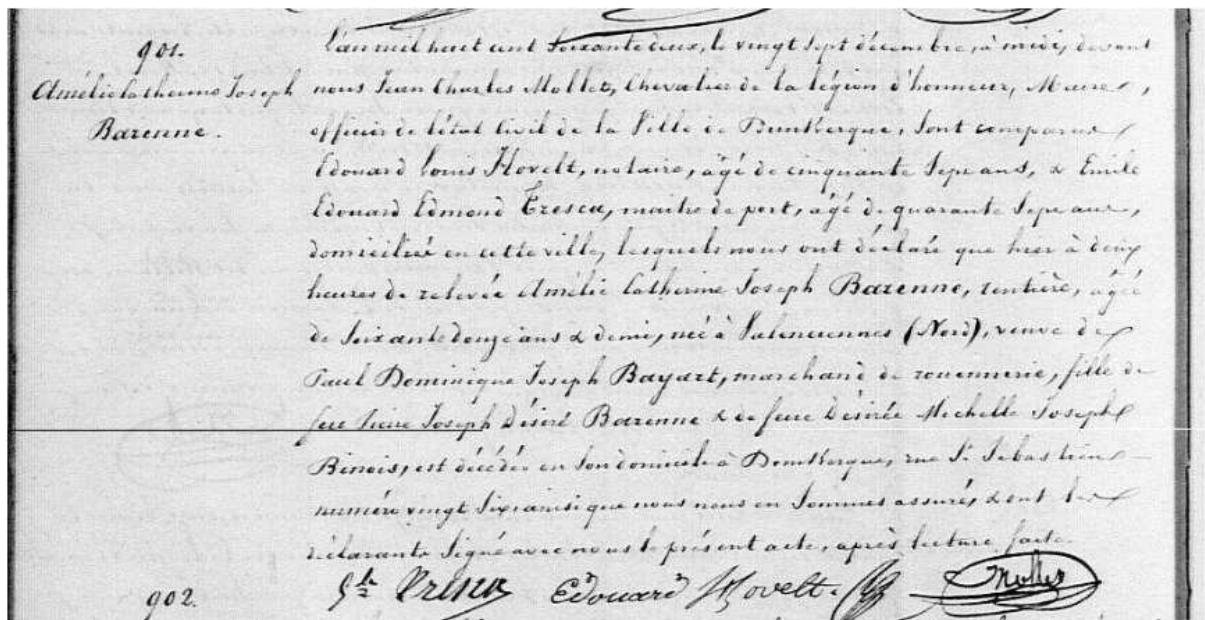 901.
Amélie Catherine Joseph
Barenne.
L'an mil huit cent soixante deux, le vingt sept décembre, à midi, devant
nous Jean Charles Mollet, Chevalier de la légion d'honneur, Maire,
officier de l'état Civil de la Ville de Dunkerque, sont comparus
Edouard Louis Hovelt, notaire, âgé de cinquante sept ans, & Emile
Edouard Edmond Tresca, maître de port, âgé de quarante sept ans,
domiciliés en cette ville, lesquels nous ont déclaré que hier à deux
heures de relevée Amélie Catherine Joseph Barenne, rentière, âgée
de soixante douze ans & demi, née à Valenciennes (Nord), veuve de
Paul Dominique Joseph Bayart, marchand de rouennerie, fille de
feu Joseph Désiré Barenne & de feue Désirée Michelle Joseph
Binois, est décédée en son domicile à Dunkerque, rue St. Sébastien
numéro vingt six, ainsi que nous nous en sommes assurés, & ont les
déclarants signé avec nous le présent acte, après lecture faite.
Tresca Edouard Hovelt. Mollet
902.